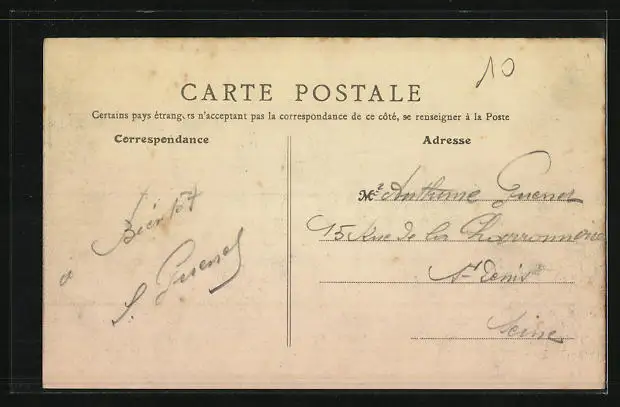 10
CARTE POSTALE
Certains pays étrangers n'acceptant pas la correspondance de ce côté, se renseigner à la Poste
Correspondance
Adresse
a Bientot
S. Guenel
Me Anthime Guenel
15 Rue de la Charronnerie
St Denis
Seine